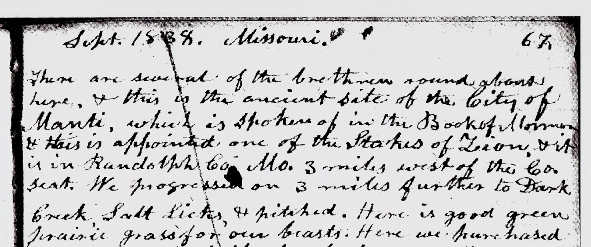 Sept. 1838. Missouri. 67.
There are several of the brethren round about
here, & this is the ancient site of the City of
Manti, which is spoken of in the Book of Mormon
& this is appointed one of the Stakes of Zion, & it
is in Randolph Co. Mo. 3 miles west of the Co.
seat. We progressed on 3 miles further to Dark
Creek Salt Licks, & pitched. Here is good green
prairie grass for our beasts. Here we purchased